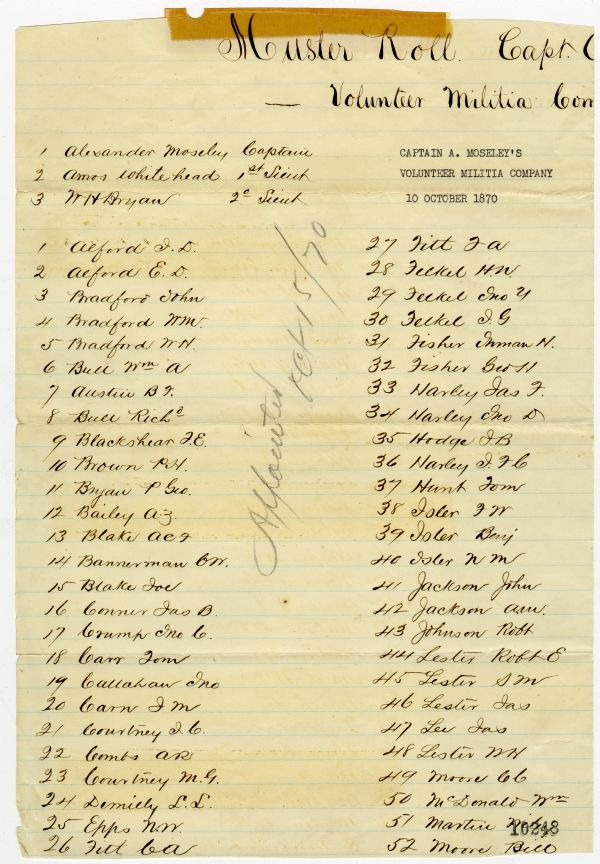 Muster Roll. Capt. C
— Volunteer Militia Com
1 Alexander Moseley Captain
2 Amos Whitehead 1st Lieut
3 W H Bryan 2c Lieut
CAPTAIN A. MOSELEY'S
VOLUNTEER MILITIA COMPANY
10 OCTOBER 1870
1 Alford J. D.
2 Alford E. D.
3 Bradford John
4 Bradford Wm.
5 Bradford W H.
6 Bull Wm A
7 Austin B F.
8 Bull Richd
9 Blackshear J. E.
10 Brown R. H.
11 Bryan P Geo.
12 Bailey A. J.
13 Blake A C F
14 Bannerman C W.
15 Blake Joe
16 Conner Jas B.
17 Crump Jno C.
18 Carr Tom
19 Callahan Jno
20 Carn J M
21 Courtney J. C.
22 Combs A R
23 Courtney M. G.
24 Demilly L. L.
25 Epps N. W.
26 Fitt C A
27 Fitt F A
28 Felkel H. N.
29 Felkel Jno Y
30 Felkel J. G
31 Fisher Inman H.
32 Fisher Geo H
33 Harley Jas F.
34 Harley Jno D
35 Hodge J B
36 Harley J. F C
37 Hunt Tom
38 Isler F W
39 Isler Benj
40 Isler N M
41 Jackson John
42 Jackson Am.
43 Johnson Robt
44 Lester Robt E
45 Lester S M
46 Lester Jas
47 Lee Jas
48 Lester W H
49 Moore C C
50 McDonald Wm
51 Martin
52 Moore Bill
Oct 15/70
10248